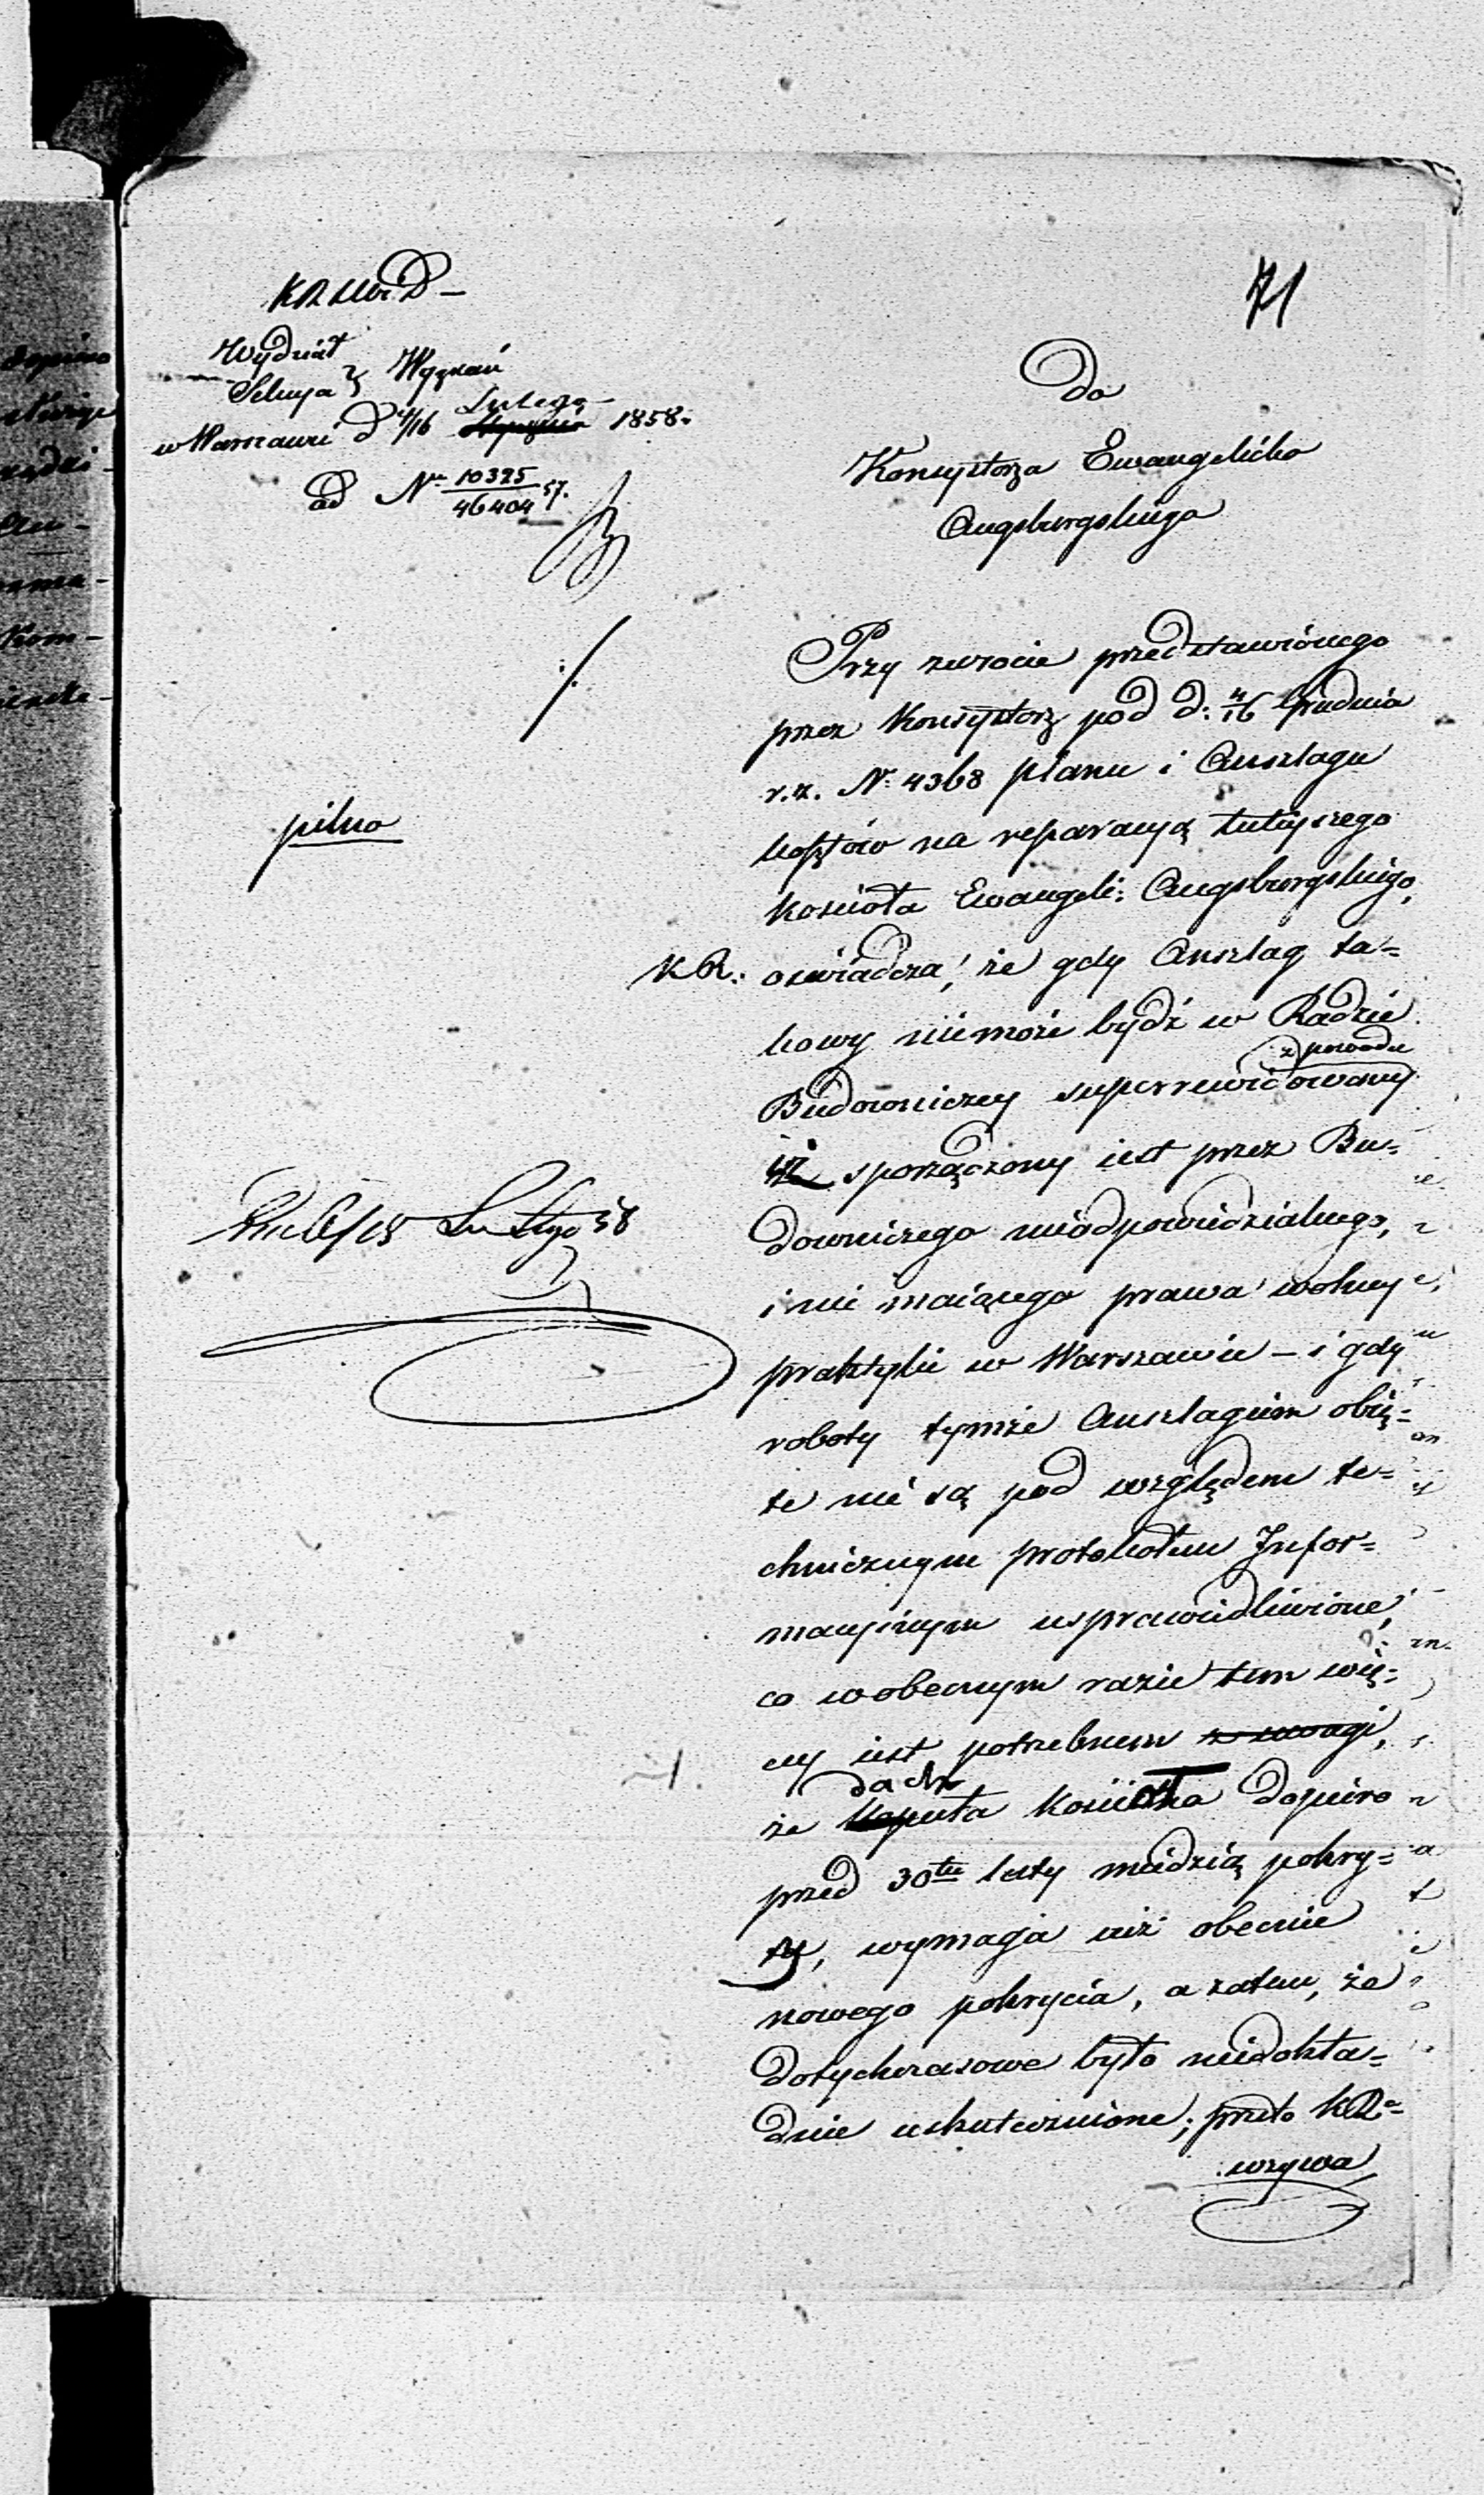 71
KRSWiD –
Wydział
Sekcya } Wyznań
w Warszawie d 4/16 Lutego Stycznia 1858.
ad No 10325/46404 57.
Do
Konsystorza Ewangelicko
Augsburgskiego
pilno
Przy zwrocie przedstawionego
przez Konsystorz pod d: 4/16 Grudnia
r.z. N. 4368 planu i Anszlagu
kosztów na reparacyą tutejszego
kościoła Ewangeli: Augsburgskiego,
KR. oswiadcza, że gdy Anszlag ta=
kowy niemoże bydź w Radzie
z powodu
Budowniczey superrewidowany
iż sporządzony iest przez Bu=
downiczego nieodpowiedzialnego,
i nie maiącego prawa wolney
praktyki w Warszawie – i gdy
roboty tymże Anszlagiem obię=
te nie są pod względem te=
chnicznym protokołem Infor=
macyinym usprawiedliwione,
co w obecnym razie tem wię=
cey iest potrzebnem z uwagi,
dach
że kopuła kościoła dopiero
przed 30tu laty miedzią pokry=
ty, wymaga iuż obecnie
nowego pokrycia, a zatem, że
dotychczasowe było niedokła=
dnie uskutecznione; przeto KR
wzywa
15 Lutego 58